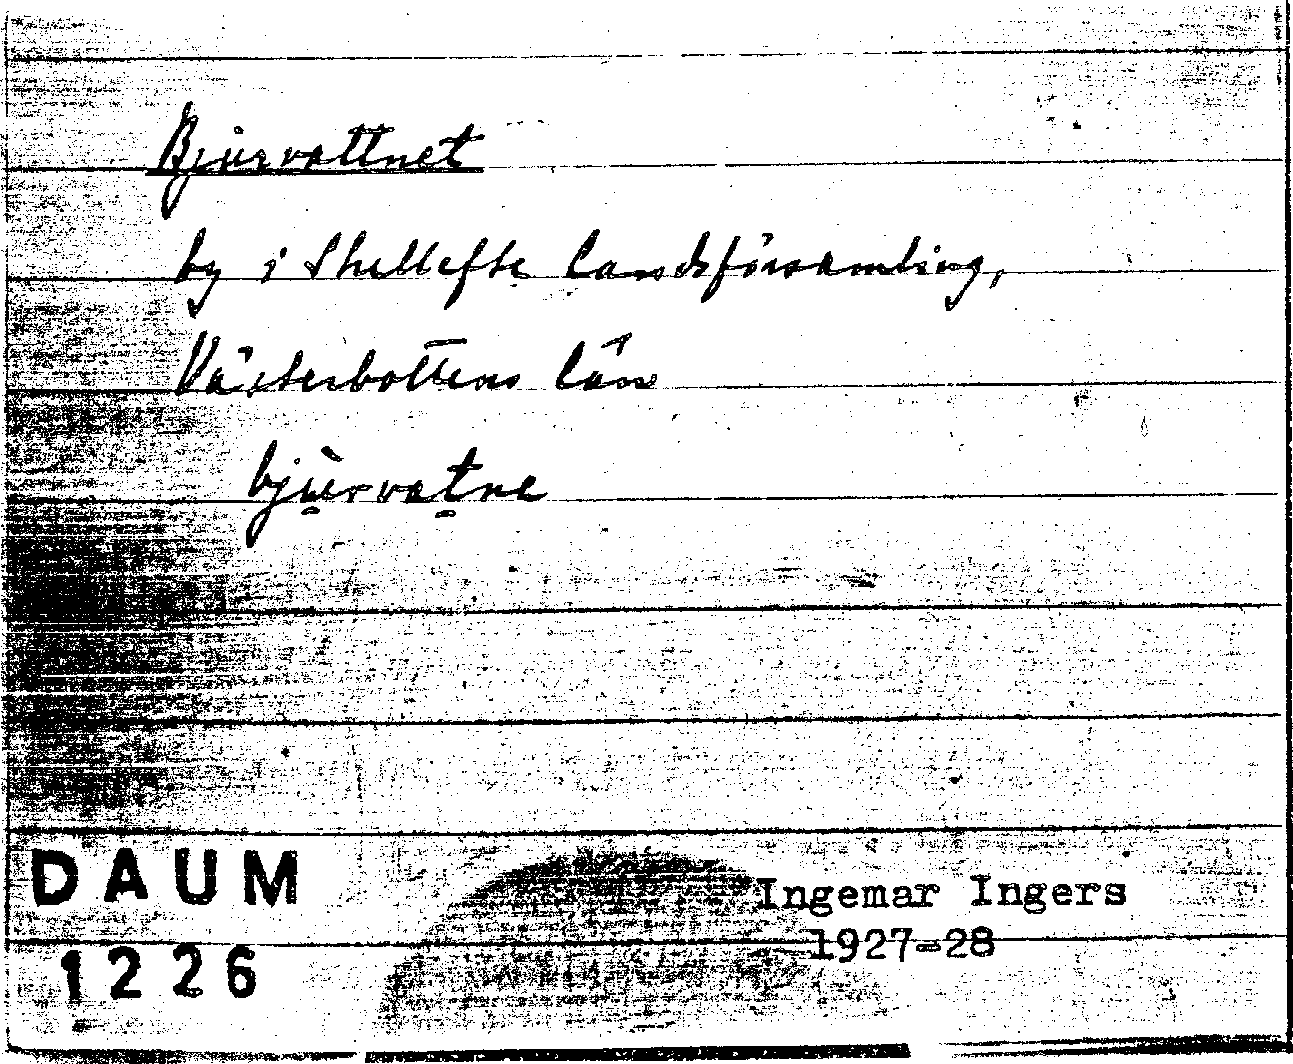 Bjurvattnet
by i Skellefte landsförsamling,
Västerbottens län
bjùrvatne
DAUM
1226
Ingemar Ingers
1927-28